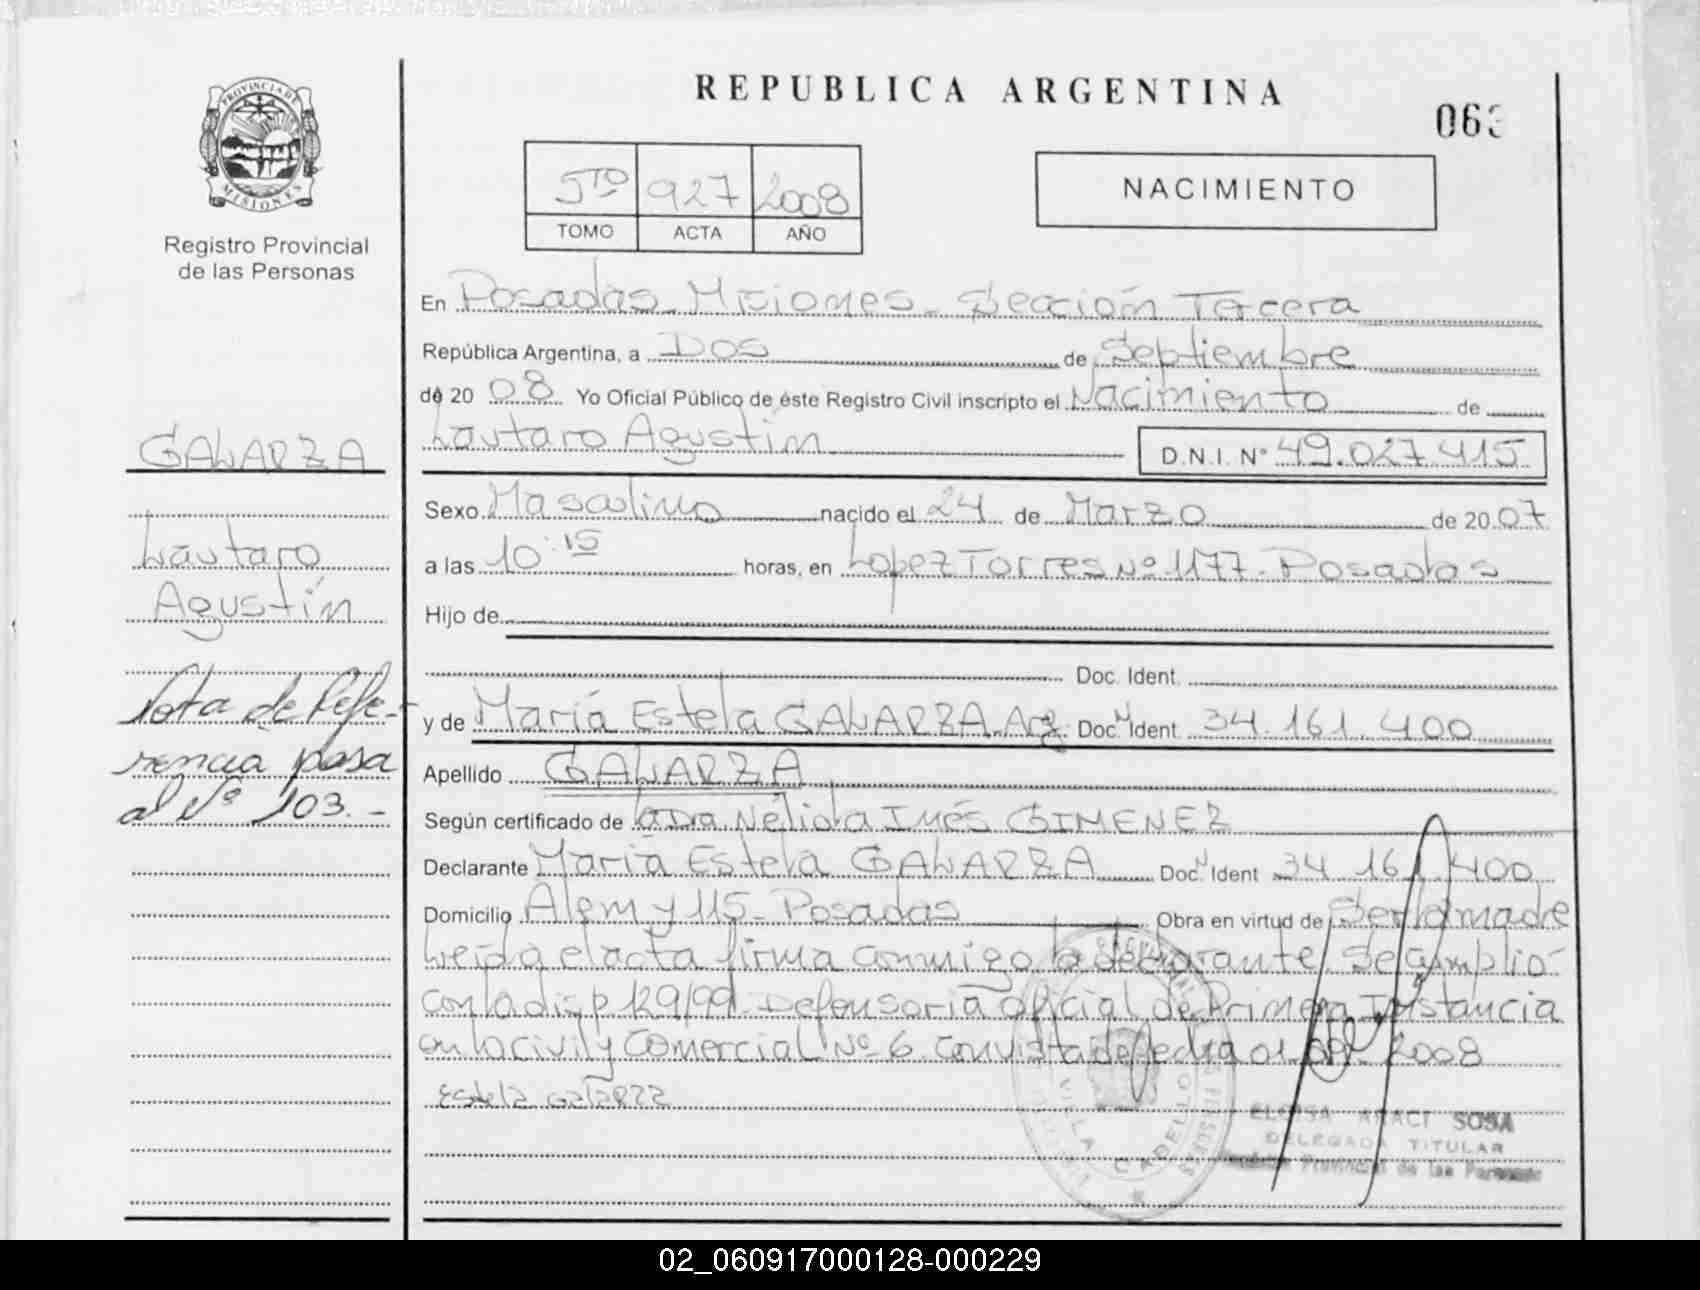 PROVINCIA DE
MISIONES
Registro Provincial
de las Personas
REPUBLICA ARGENTINA
063
5TO 927 2008
TOMO ACTA AÑO
NACIMIENTO
En Posadas - Misiones - Sección Tercera
República Argentina, a Dos de Septiembre
de 20 08 Yo Oficial Público de éste Registro Civil inscripto el Nacimiento de
Lautaro Agustín D.N.I. N° 49.027.415
GALARZA
Lautaro
Agustín
Nota de Refe-
rencia pasa
al Nº 103.-
Sexo Masculino nacido el 24 de Marzo de 20 07
a las 10:15 horas, en Lopez Torres Nº 1177 - Posadas
Hijo de
Doc. Ident.
y de María Estela GALARZA Arg. Doc. Ident. 34.161.400
Apellido GALARZA
Según certificado de la Dra. Nélida Inés GIMENEZ
Declarante María Estela GALARZA Doc. Ident 34.161.400
Domicilio Alem y 115 - Posadas Obra en virtud de Ser la madre
Leída el acta firma conmigo la declarante. Se cumplió
con la disp 129/99. Defensoria Oficial de Primera Instancia
en lo civil y Comercial Nº 6. Con vista de fecha 01 2008
Estela Galarza
VILLA CABELLO
ELOISA ARACI SOSA
DELEGADA TITULAR
Registro Provincial de las Personas
02_060917000128-000229